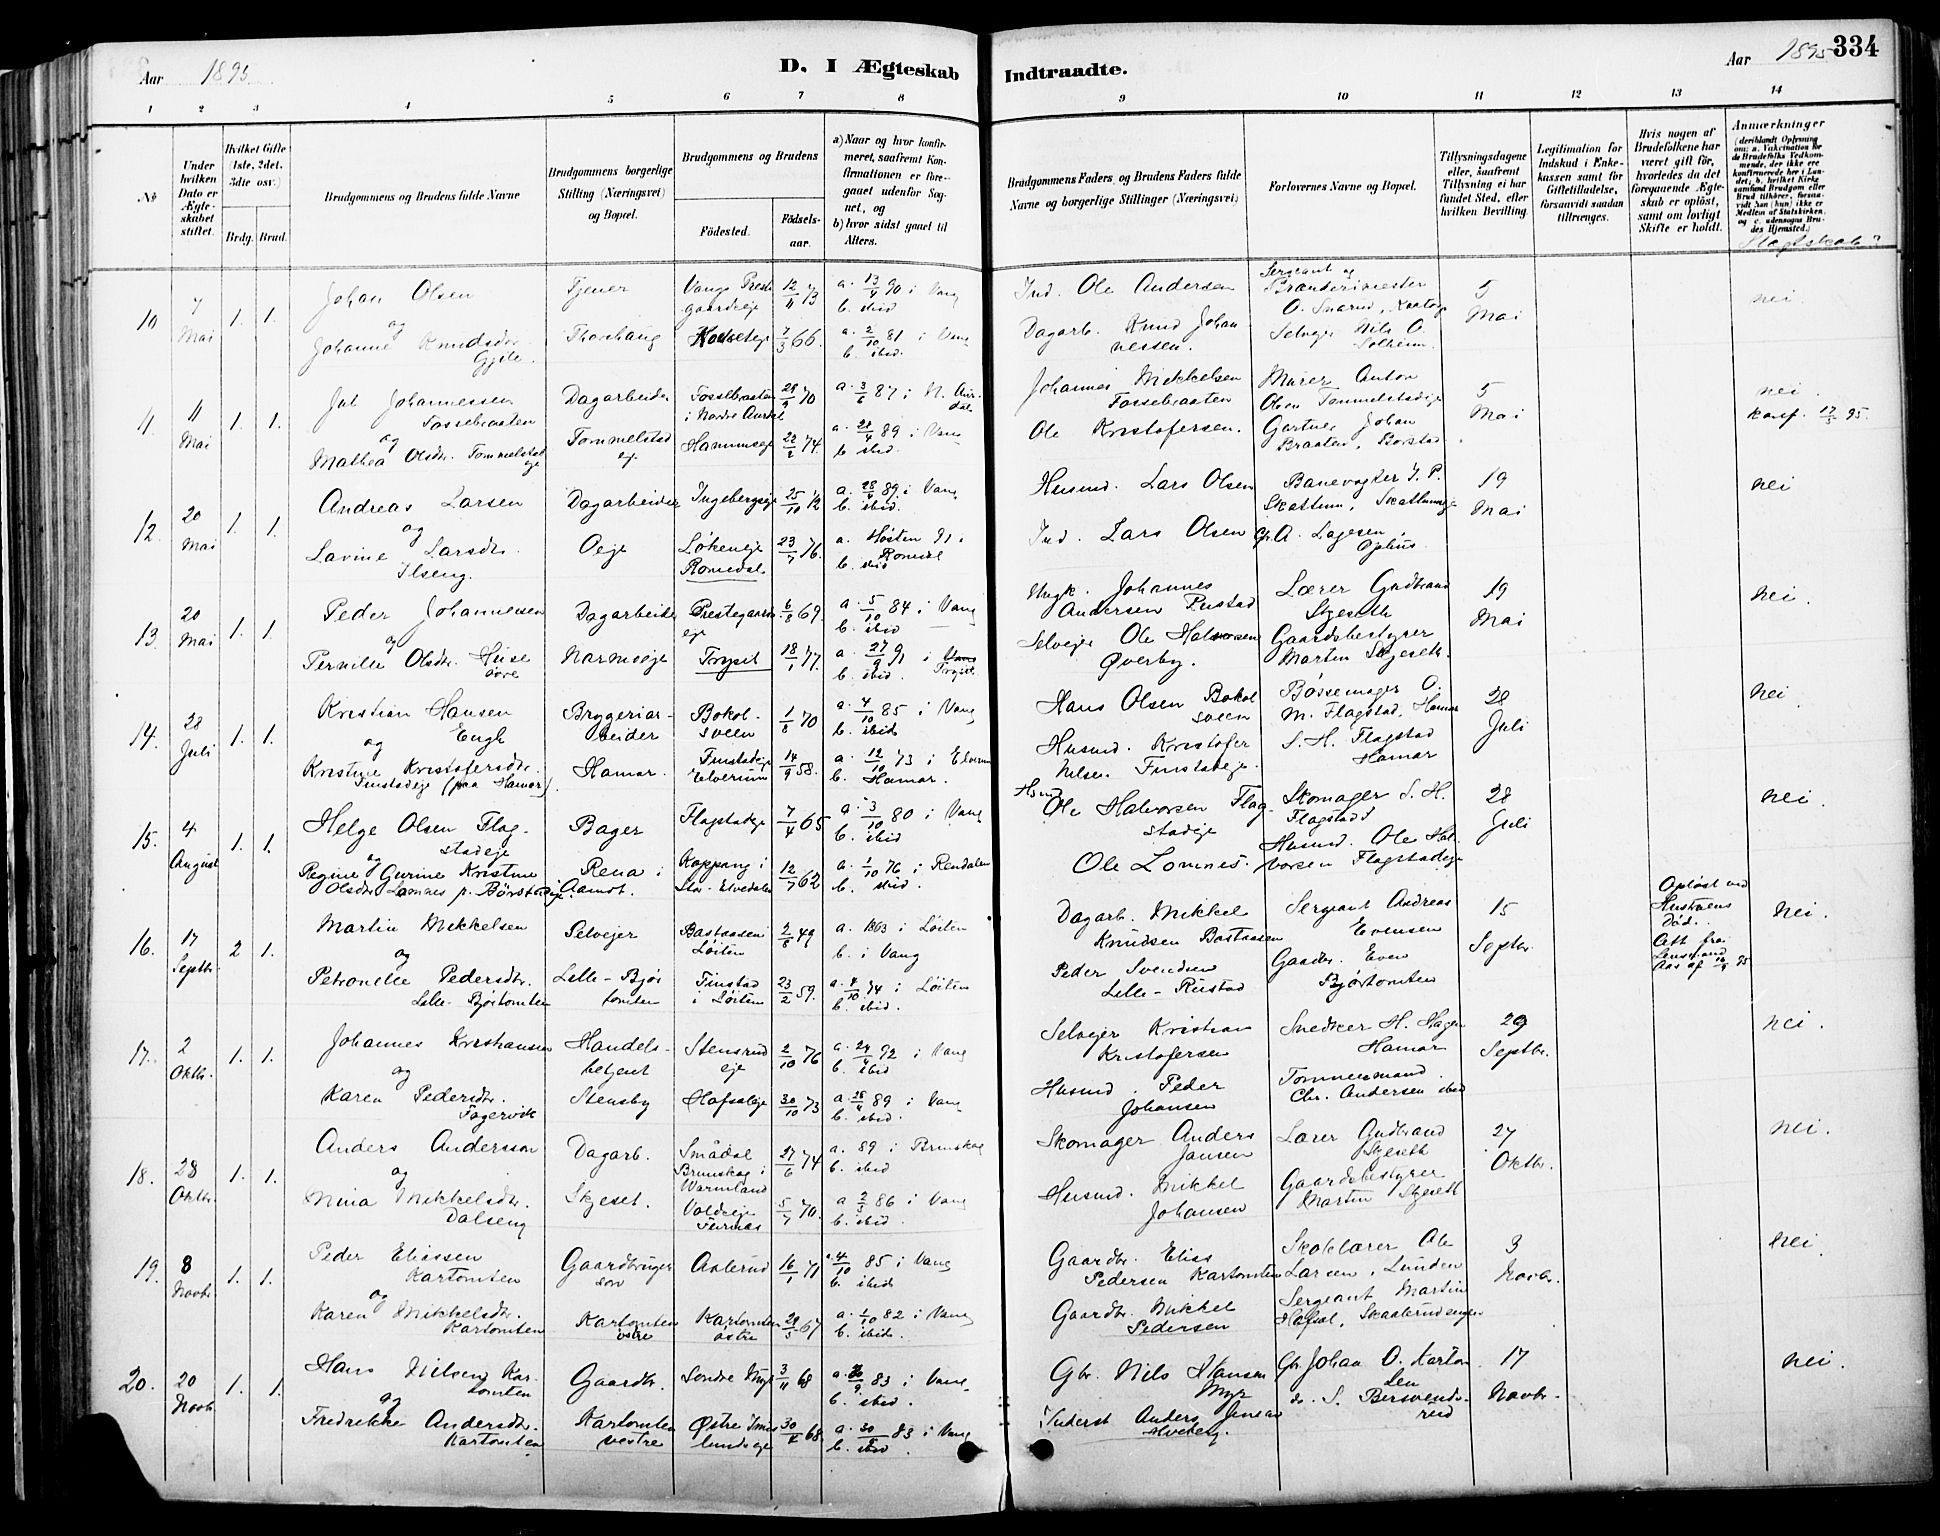 Aar 1895.
D. I Ægteskab
Indtraadte.
Aar 1895
334
1 2 3 4 5 6 7 8 9 10 11 12 13 14
No
Under hvilken Dato er Ægteskabet stiftet.
Hvilket Gifte (1ste, 2det, 3dte osv.)
Brdg. Brud.
Brudgommens og Brudens fulde Navne
Brudgommens borgerlige Stilling (Næringsvei) og Bopæl.
Brudgommens og Brudens
Födested.
Födselsaar.
a) Naar og hvor konfirmeret, saafremt Konfirmationen er foregaaet udenfor Sognet, og
b) hvor sidst gaaet til Alters.
Brudgommens Faders og Brudens Faders fulde Navne og borgerlige Stillinger (Næringsvei)
Forlovernes Navne og Bopæl.
Tillysningsdagene eller, saafremt Tillysning ei har fundet Sted, efter hvilken Bevilling.
Legitimation for Indskud i Enkekassen samt for Giftetilladelse, forsaavidt saadan tiltrænges.
Hvis nogen af Brudefolkene har været gift för, hvorledes da det foregaaende Ægteskab er oplöst, samt om lovligt Skifte er holdt.
Anmærkninger
10 7 Mai 1. 1.
Johan Olsen
og
Johanne Knudsdr.
Gjile.
Tjener
Thorshaug
Vangs Prestegaardseie 12/11 73 a. 13/4 90 i Vang
b. ibid
7/3 66. a. 2/10 81 i Vang
b. ibid.
Ind. Ole Andersen
Dagarb. Knud Johannessen.
Sergeant og Brænderimester
O. Snarud,
Selveier Nils O. Solheim.
5 Mai
nei.
11. 11 Mai 1. 1.
Jul Johannessen
Fossebraaten
og
Mathea Olsdr. Tommelstadeje
Dagarbeider
Tommelstadej
Fossebraaten i Nordre Aurdal 29/9 70 a. 3/6 87 i N. Aurdal
Hammseje 22/2 74. a. 28/4 89 i Vang
b. ibid.
Johannes Mikkelsen
Fossebraaten
Ole Kristofersen.
Murer Anton
Olsen Tommelstadeje
Gartner Johan
Braaten, Borstad
5 Mai
nei
konf. 17/5 95
12. 20 Mai 1. 1.
Andreas Larsen
og
Lavine Larsdr.
Ilseng.
Dagarbeider
Oeje
Ingebergseje 25/10 72 a. 28/4 89. i Vang
b. ibid.
Løkeneje
Romedal 23/7 76. a. Høsten 91 i Romedal
b. ibid
Husmd. Lars Olsen
Ind. Lars Olsen
Banevogter J. P.
Skattum, Skattumseje
G. A. Lagesen,
Ophus.
19 Mai
nei
13. 20 Mai 1. 1.
Peder Johannesen
og
Pernille Olsdr. Huse
øvre
Dagarbeider
Narmoeje
Prestegaardseje 6/8 69. a. 5/10 84 i Vang
b. ibid
Trysil 18/1 77. a. 27/9 91 i Vang Trysil.
b. ibid.
Hugk. Johannes
Andersen Rustad
Selveje Ole Halvorsen
Øverby.
Lærer Gudbrand
Skjeseth
Gaardsbestyrer
Martin Skjeseth.
19 Mai
nei.
14. 28 Juli 1. 1.
Kristian Hansen
Engh
og
Kristine Kristofersdr.
Finstadeje (paa Hamar).
Bryggeriarbeider
Hamar.
Bokolsveen 1/8 70 a. 4/10 85 i Vang
b. ibid.
Finstadeje
Elverum 14/9 58. a. 12/10 73 i Elverum
b. Hamar.
Hans Olsen Bokolsveen
Husmd. Kristofer
Nilsen Finstadeje.
Bøssemager O.
M. Flagstad, Hamar
S. H. Flagstad
Hamar
28 Juli
nei.
15. 4 August 1. 1.
Helge Olsen Flagstadeje
og
Regine Gurine Kristine
Olsdr. Lomnes p. Børstadeje.
Bager
Rena i Aamot.
Flagstadeje 7/4 65 a. 3/10 80 i Vang
b. ibid.
Koppang i
Stor-Elvedalen 12/7 62 a. 1/10 76 i Rendalen
b. ibid.
Husmd. Ole Halvorsen Flagstadeje
Ole Lomnes.
Skomager S. H.
Flagstad
Husmd. Ole Halvorsen Flagstadeje
28 Juli
nei.
16. 17 Septbr. 2 1.
Martin Mikkelsen
og
Petronelle Pedersdr.
Lille-Bjørtomten
Selvejer
Lille-Bjørtomten
Bastaasen
Løiten 2/8 49 a. 1863 i Løiten
b. i Vang
Finstad
i Løiten 23/2 59. a. 4/10 74 i Løiten
b. ibid.
Dagarb. Mikkel
Knudsen Bastaasen
Peder Svendsen
Lille-Rustad
Sergeant Andreas
Evensen
Gaardbr. Even
Bjørtomten
15 Septbr.
Opløst ved
Hustruens
Død.
Att. fra
Lensmand
Aas af 14/9 95
nei.
17. 2 Oktbr. 1. 1.
Johannes Kristiansen
og
Karen Pedersdr.
Fagervik
Handelsbetjent
Stensby
Stensrudeje 2/10 76 a. 24/4 92 i Vang
b. ibid
Hofsaleje 30/10 73 a. 28/4 89 i Vang
b. ibid.
Selvejer Kristian
Kristofersen
Husmd. Peder
Johansen
Snedker H. Hagen
Hamar
Tømmermand
Chr. Andersen ibid
29 Septbr.
nei.
18. 28 Oktbr. 1. 1.
Anders Andersson
og
Nina Mikkelsdr.
Dalseng
Dagarb.
Skjeset.
Smådal
Brunskog i
Warmland 27/6 74 a. 89 i Brunskog
b. ibid
Voldeje
Furnes 5/7 70. a 2/5 86 i Vang
b. ibid.
Skomager Anders
Jansen
Husmd. Mikkel
Johansen
Lærer Gudbrand
Skjeseth
Gaardsbestyrer
Martin Skjeseth
27 Oktbr.
nei.
19. 8 Novbr. 1. 1.
Peder Eliassen
Kartomten
og
Karen Mikkelsdr.
Kartomten
Gaardbrugersøn
Kartomten
østre
Aalerud 16/1 71 a. 4/10 85 i Vang
b. ibid.
Kartomten
østre 28/5 67 a. 1/10 82 i Vang
b. ibid.
Gaardbr. Elias
Pedersen Kartomten
Gaardbr. Mikkel
Pedersen
Skolelærer Ole
Larsen, Lunden
Sergeant Martin
Hofsal, Skaaberudengen
3 Novbr.
nei.
20. 20 Novb. 1. 1.
Hans Nilsen Kartomten
og
Fredrikke Andersdr.
Kartomten
Gaardbr.
Kartomten
vestre
Søndre Myr 3/11 68 a. 30/9. 83 i Vang.
b. ibid.
Østre Imelundseje 30/4 68. a. 30/9 83 i Vang
b. ibid.
Gbr. Nils Hansen
Myr
Inderst Anders Jensen
Alveberg.
Gbr Johan O. Kartomten
do. S. Bersvendsrud
17 Novbr.
nei.